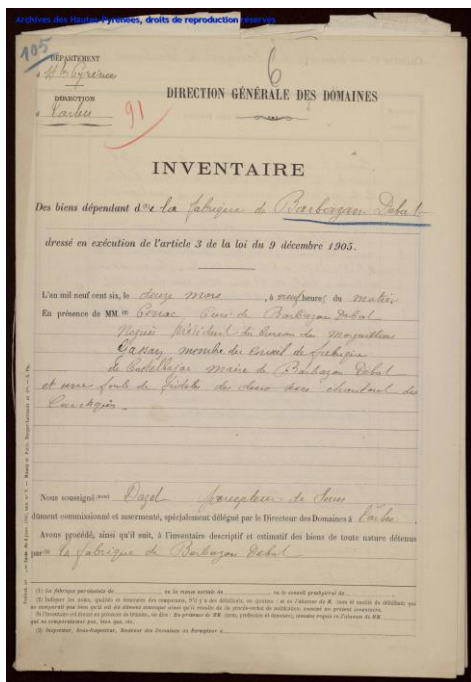 Archives des Hautes Pyrénées, droits de reproduction réservés
105
6
DÉPARTEMENT
Htes Pyrénées
DIRECTION
Tarbes
91
DIRECTION GÉNÉRALE DES DOMAINES
INVENTAIRE
Des biens dépendant de la fabrique de Barbazan Debat
dressé en exécution de l'article 3 de la loi du 9 décembre 1905.
L'an mil neuf cent six, le douze mars, à neuf heures, du matin
En présence de MM. Curé de Barbazan Debat
président du bureau des marguilliers
membre du conseil de fabrique
de maire de Barbazan Debat
et une foule de fidèles des deux sexes chantant des
Cantiques.
Nous soussigné Dazet percepteur de
dûment commissionné et assermenté, spécialement délégué par le Directeur des Domaines à Tarbes
Avons procédé, ainsi qu'il suit, à l'inventaire descriptif et estimatif des biens de toute nature détenus
par la fabrique de Barbazan Debat
(1) La fabrique paroissiale de ou la mense curiale de ou le conseil presbytéral de
(3) Inspecteur, Sous-Inspecteur, Receveur des Domaines ou Percepteur à